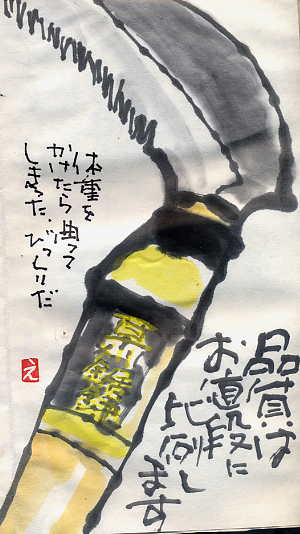 体重を
かけたら曲って
しまった。びっくりだ
品質は
お値段に
比例し
ます
え